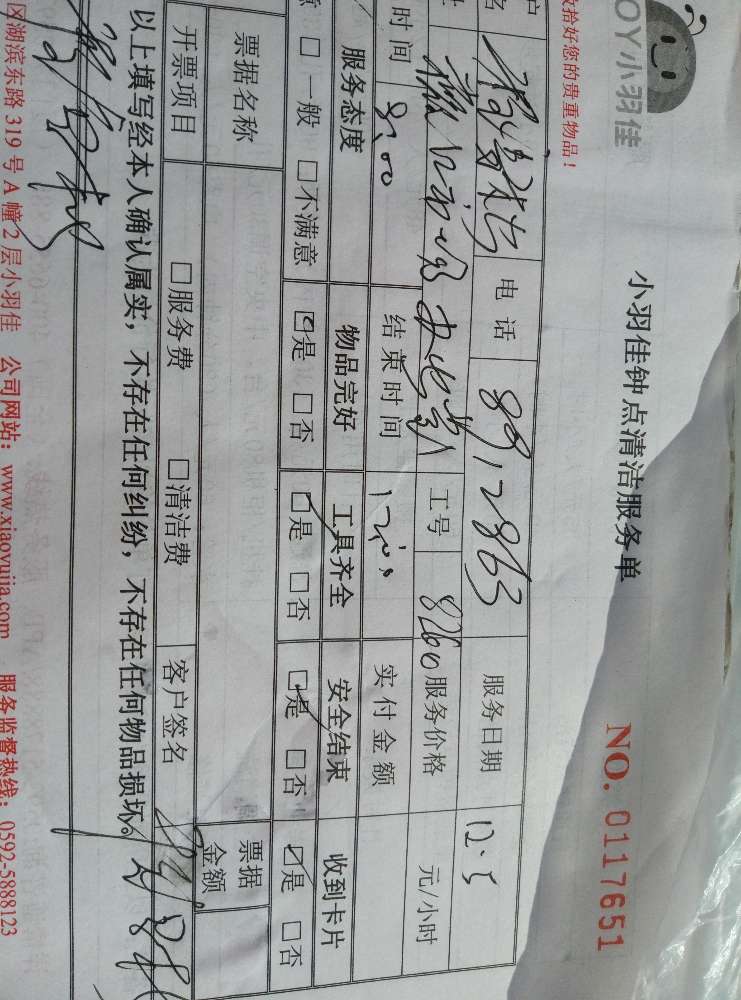 OY小羽佳
小羽佳钟点清洁服务单
NO. 0117651
收拾好您的贵重物品!
电话 8912863 服务日期 12.5
工号 8260 服务价格 元/小时
时间 8:00 结束时间 12:00 实付金额
服务态度 物品完好 工具齐全 安全结束 收到卡片
意 □一般 □不满意 ☑是 □否 ☑是 □否 ☑是 □否 ☑是 □否
票据名称 票据金额
开票项目 □服务费 □清洁费 客户签名
以上填写经本人确认属实,不存在任何纠纷,不存在任何物品损坏。
区湖滨东路 319 号 A 幢 2 层小羽佳 公司网站:www.xiaoyujia.com 服务监督热线:0592-5888123